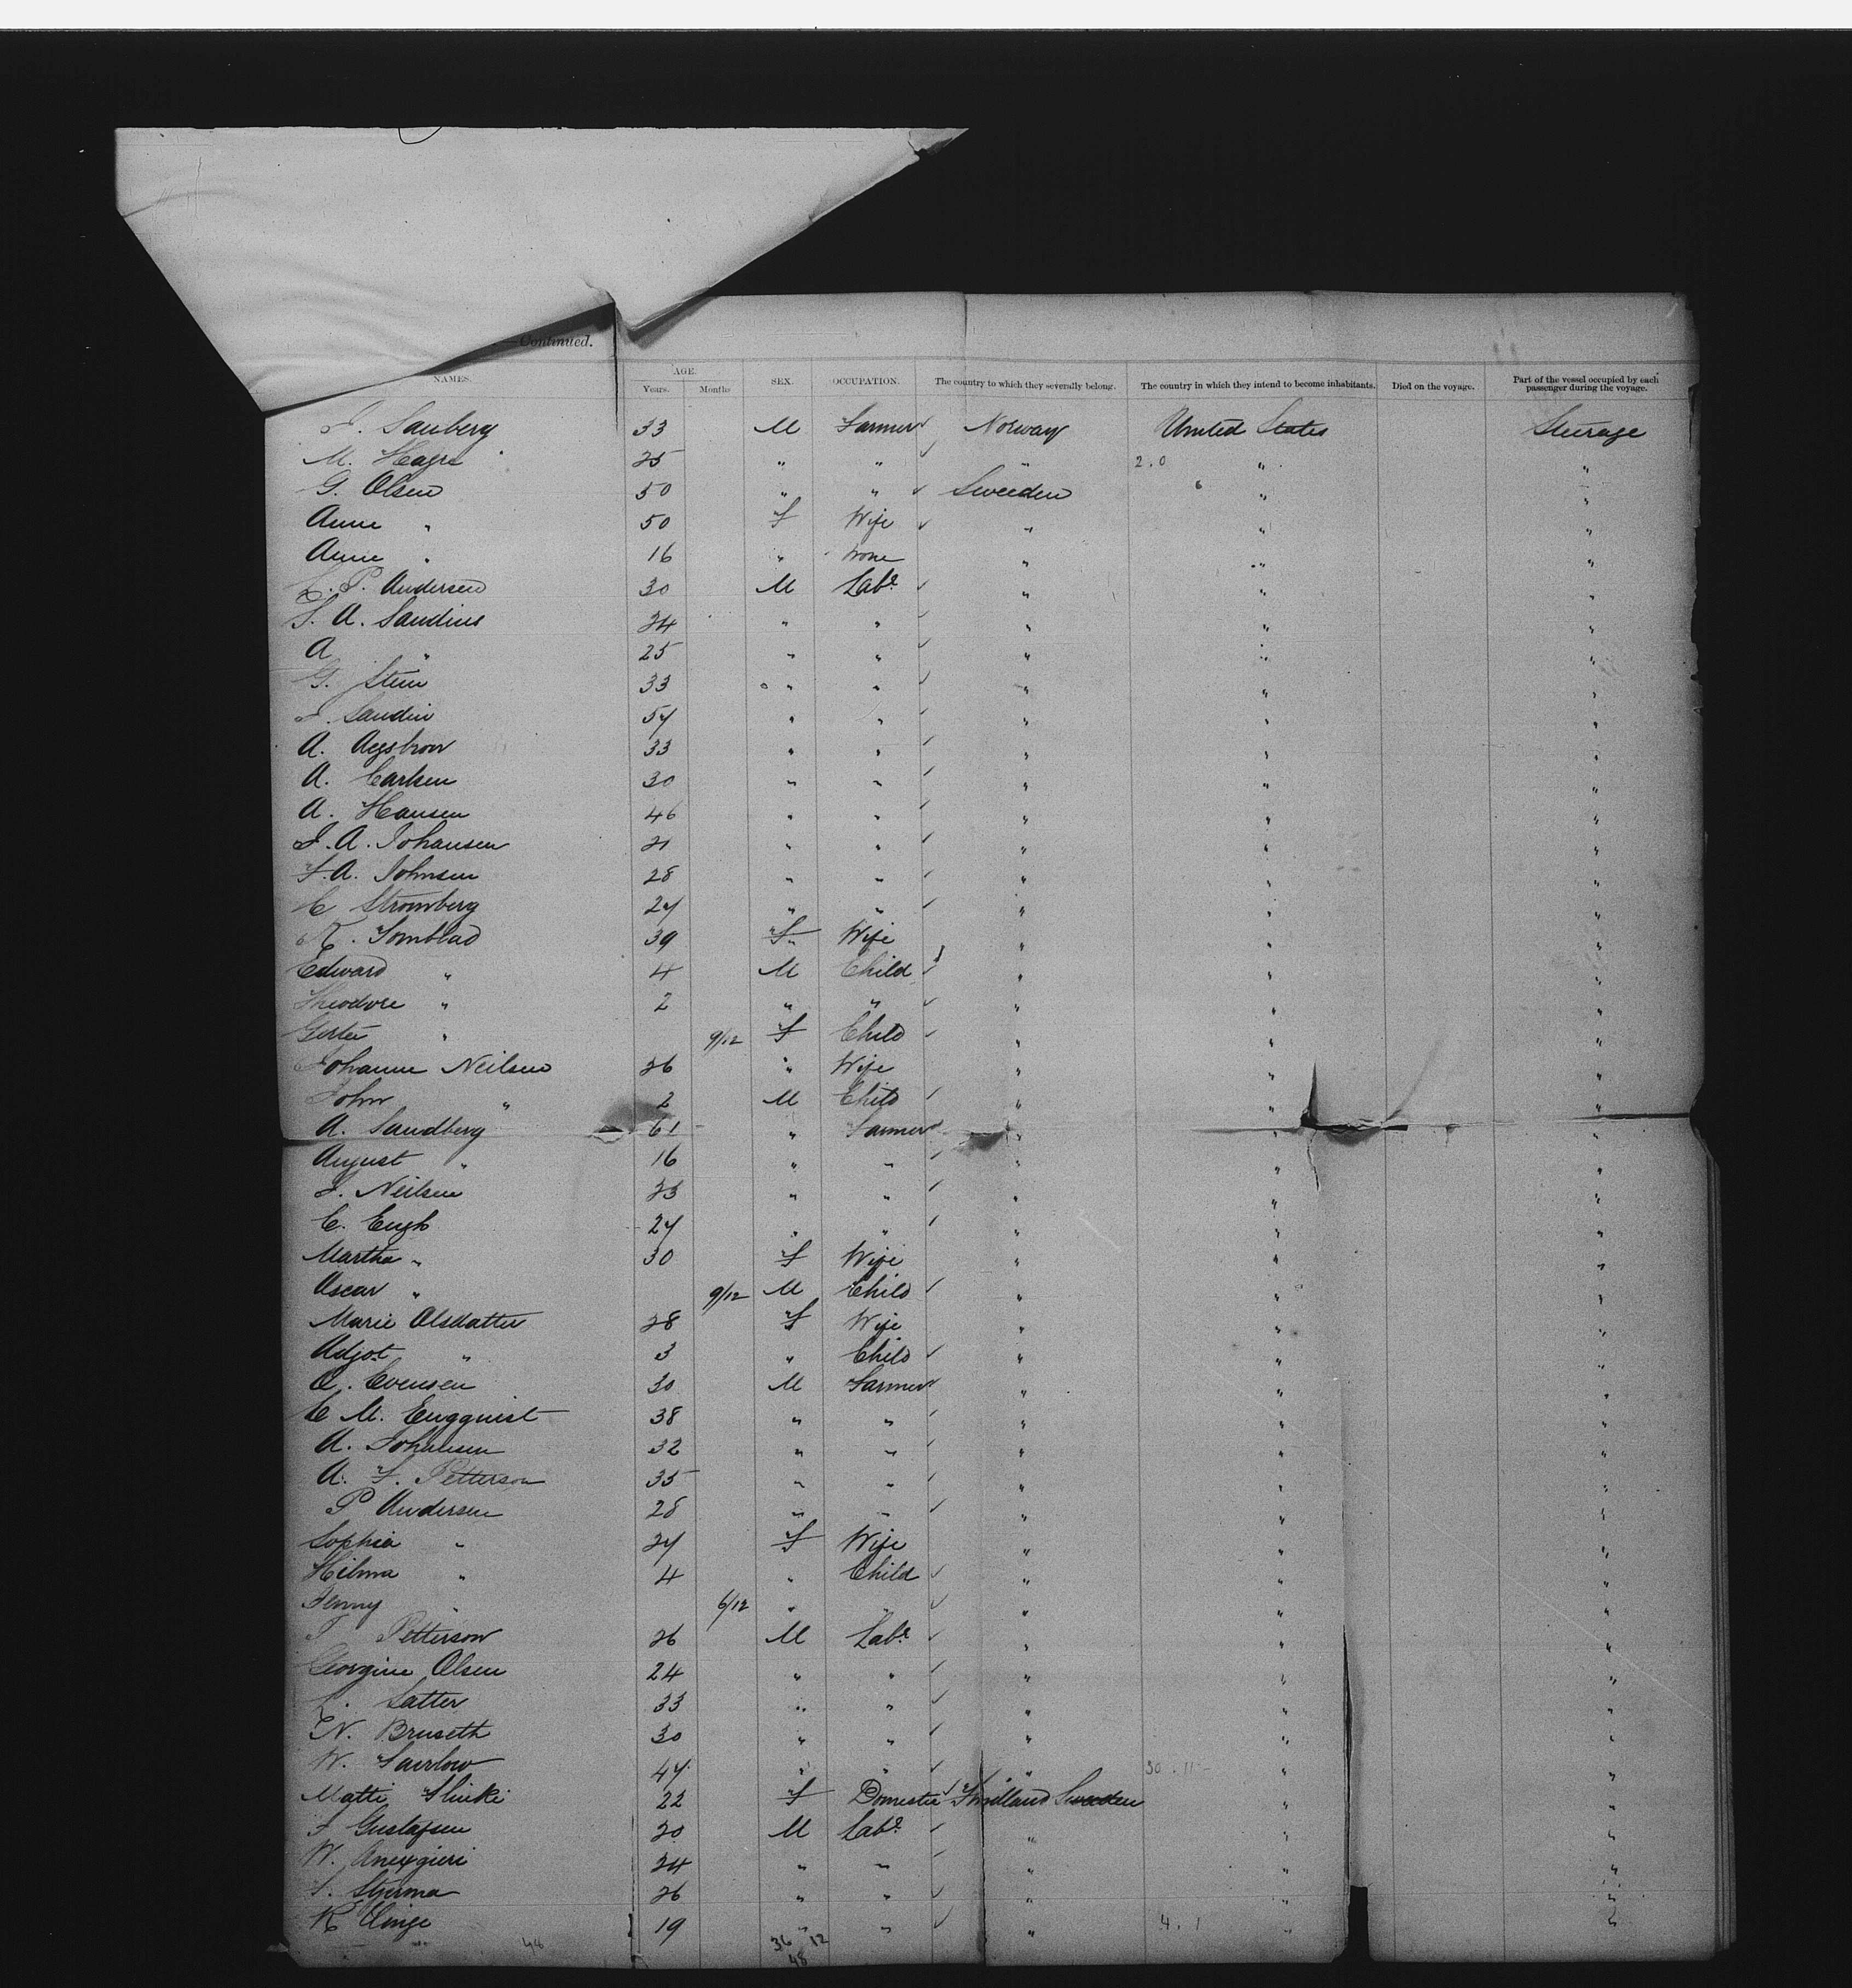 —Continued.
NAMES. AGE. Years. Months SEX. OCCUPATION. The country to which they severally belong. The country in which they intend to become inhabitants. Died on the voyage. Part of the vessel occupied by each passenger during the voyage.
Sanberg 33 M Farmer ✓ Norway United States Steerage
M. Hagre 25 " " ✓ " 2.0 " "
G. Olsen 50 " " ✓ Sweeden " "
Anne " 50 F Wife ✓ " " "
Anne " 16 " none " " "
P. Andersen 30 M Labr ✓ " " "
A. Sandius 24 " " ✓ " " "
A " 25 " " ✓ " " "
G. Stein 33 " " ✓ " " "
Sandin 57 " " ✓ " " "
A. 33 " " ✓ " " "
A. Carlsen 30 " " ✓ " " "
A. Hansen 46 " " ✓ " " "
J. A. Johansen 21 " " ✓ " " "
F. A. Johnsen 28 " " ✓ " " "
C Stromberg 27 " " ✓ " " "
39 F Wife " " "
Edward " 4 M Child ✓ " " "
Theodore " 2 " " ✓ " " "
" 9/12 F Child ✓ " " "
Johanne Neilsen 26 " Wife " " "
John " 2 M Child ✓ " " "
A. Sandberg 61 " Farmer ✓ " " "
August " 16 " " ✓ " " "
J. Neilsen 23 " " ✓ " " "
C. Engh 27 " " ✓ " " "
Martha " 30 F Wife " " "
Oscar " 9/12 M Child ✓ " " "
Marie Olsdatter 28 F Wife " " "
" 3 " Child ✓ " " "
Evensen 30 M Farmer ✓ " " "
C M. Engquist 38 " " ✓ " " "
A. Johansen 32 " " ✓ " " "
A. F. Petterson 35 " " ✓ " " "
P Andersen 28 " " ✓ " " "
Sophia " 27 F Wife " " "
Hilma " 4 " Child ✓ " " "
Jenny " 6/12 " " ✓ " " "
Petterson 26 M Labr ✓ " " "
Georgine Olsen 24 " " ✓ " " "
Satter 33 " " ✓ " " "
N. Bruseth 30 " " ✓ " " "
W. 47 " " ✓ " 30.11 " "
Matti 22 F Domestic ✓ Sweeden " "
Gustafsen 20 M Labr ✓ " " "
W. 24 " " ✓ " " "
26 " " ✓ " " "
19 " " ✓ " 4.1 " "
48 36 12
48